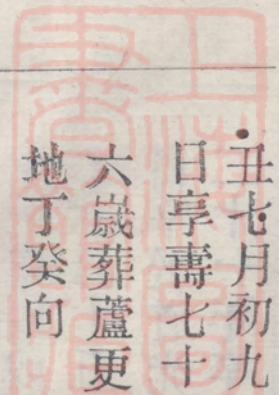 丑七月初九
日享壽七十
六歲葬蘆更
地丁癸向